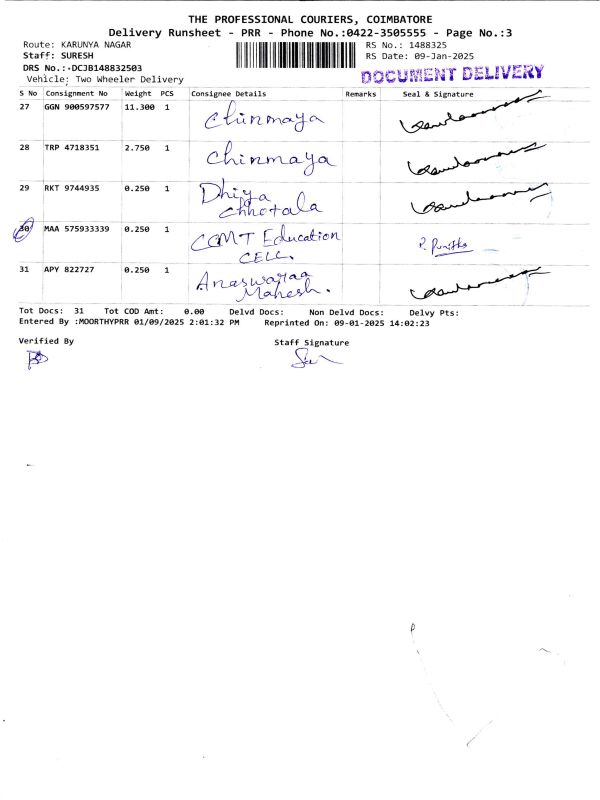 THE PROFESSIONAL COURIERS, COIMBATORE
Delivery Runsheet - PRR - Phone No.:0422-3505555 - Page No.:3
Route: KARUNYA NAGAR RS No.: 1488325
Staff: SURESH RS Date: 09-Jan-2025
DRS No.:-DCJB148832503
DOCUMENT DELIVERY
Vehicle: Two Wheeler Delivery
S No Consignment No Weight PCS Consignee Details Remarks Seal & Signature
27 GGN 900597577 11.300 1 Chinmaya
28 TRP 4718351 2.750 1 Chinmaya
29 RKT 9744935 0.250 1 Dhiya
Chhotala
30 MAA 575933339 0.250 1 CCMT Education
CELL.
31 APY 822727 0.250 1 Anaswaraa
Mahesh.
Tot Docs: 31 Tot COD Amt: 0.00 Delvd Docs: Non Delvd Docs: Delvy Pts:
Entered By :MOORTHYPRR 01/09/2025 2:01:32 PM Reprinted On: 09-01-2025 14:02:23
Verified By Staff Signature